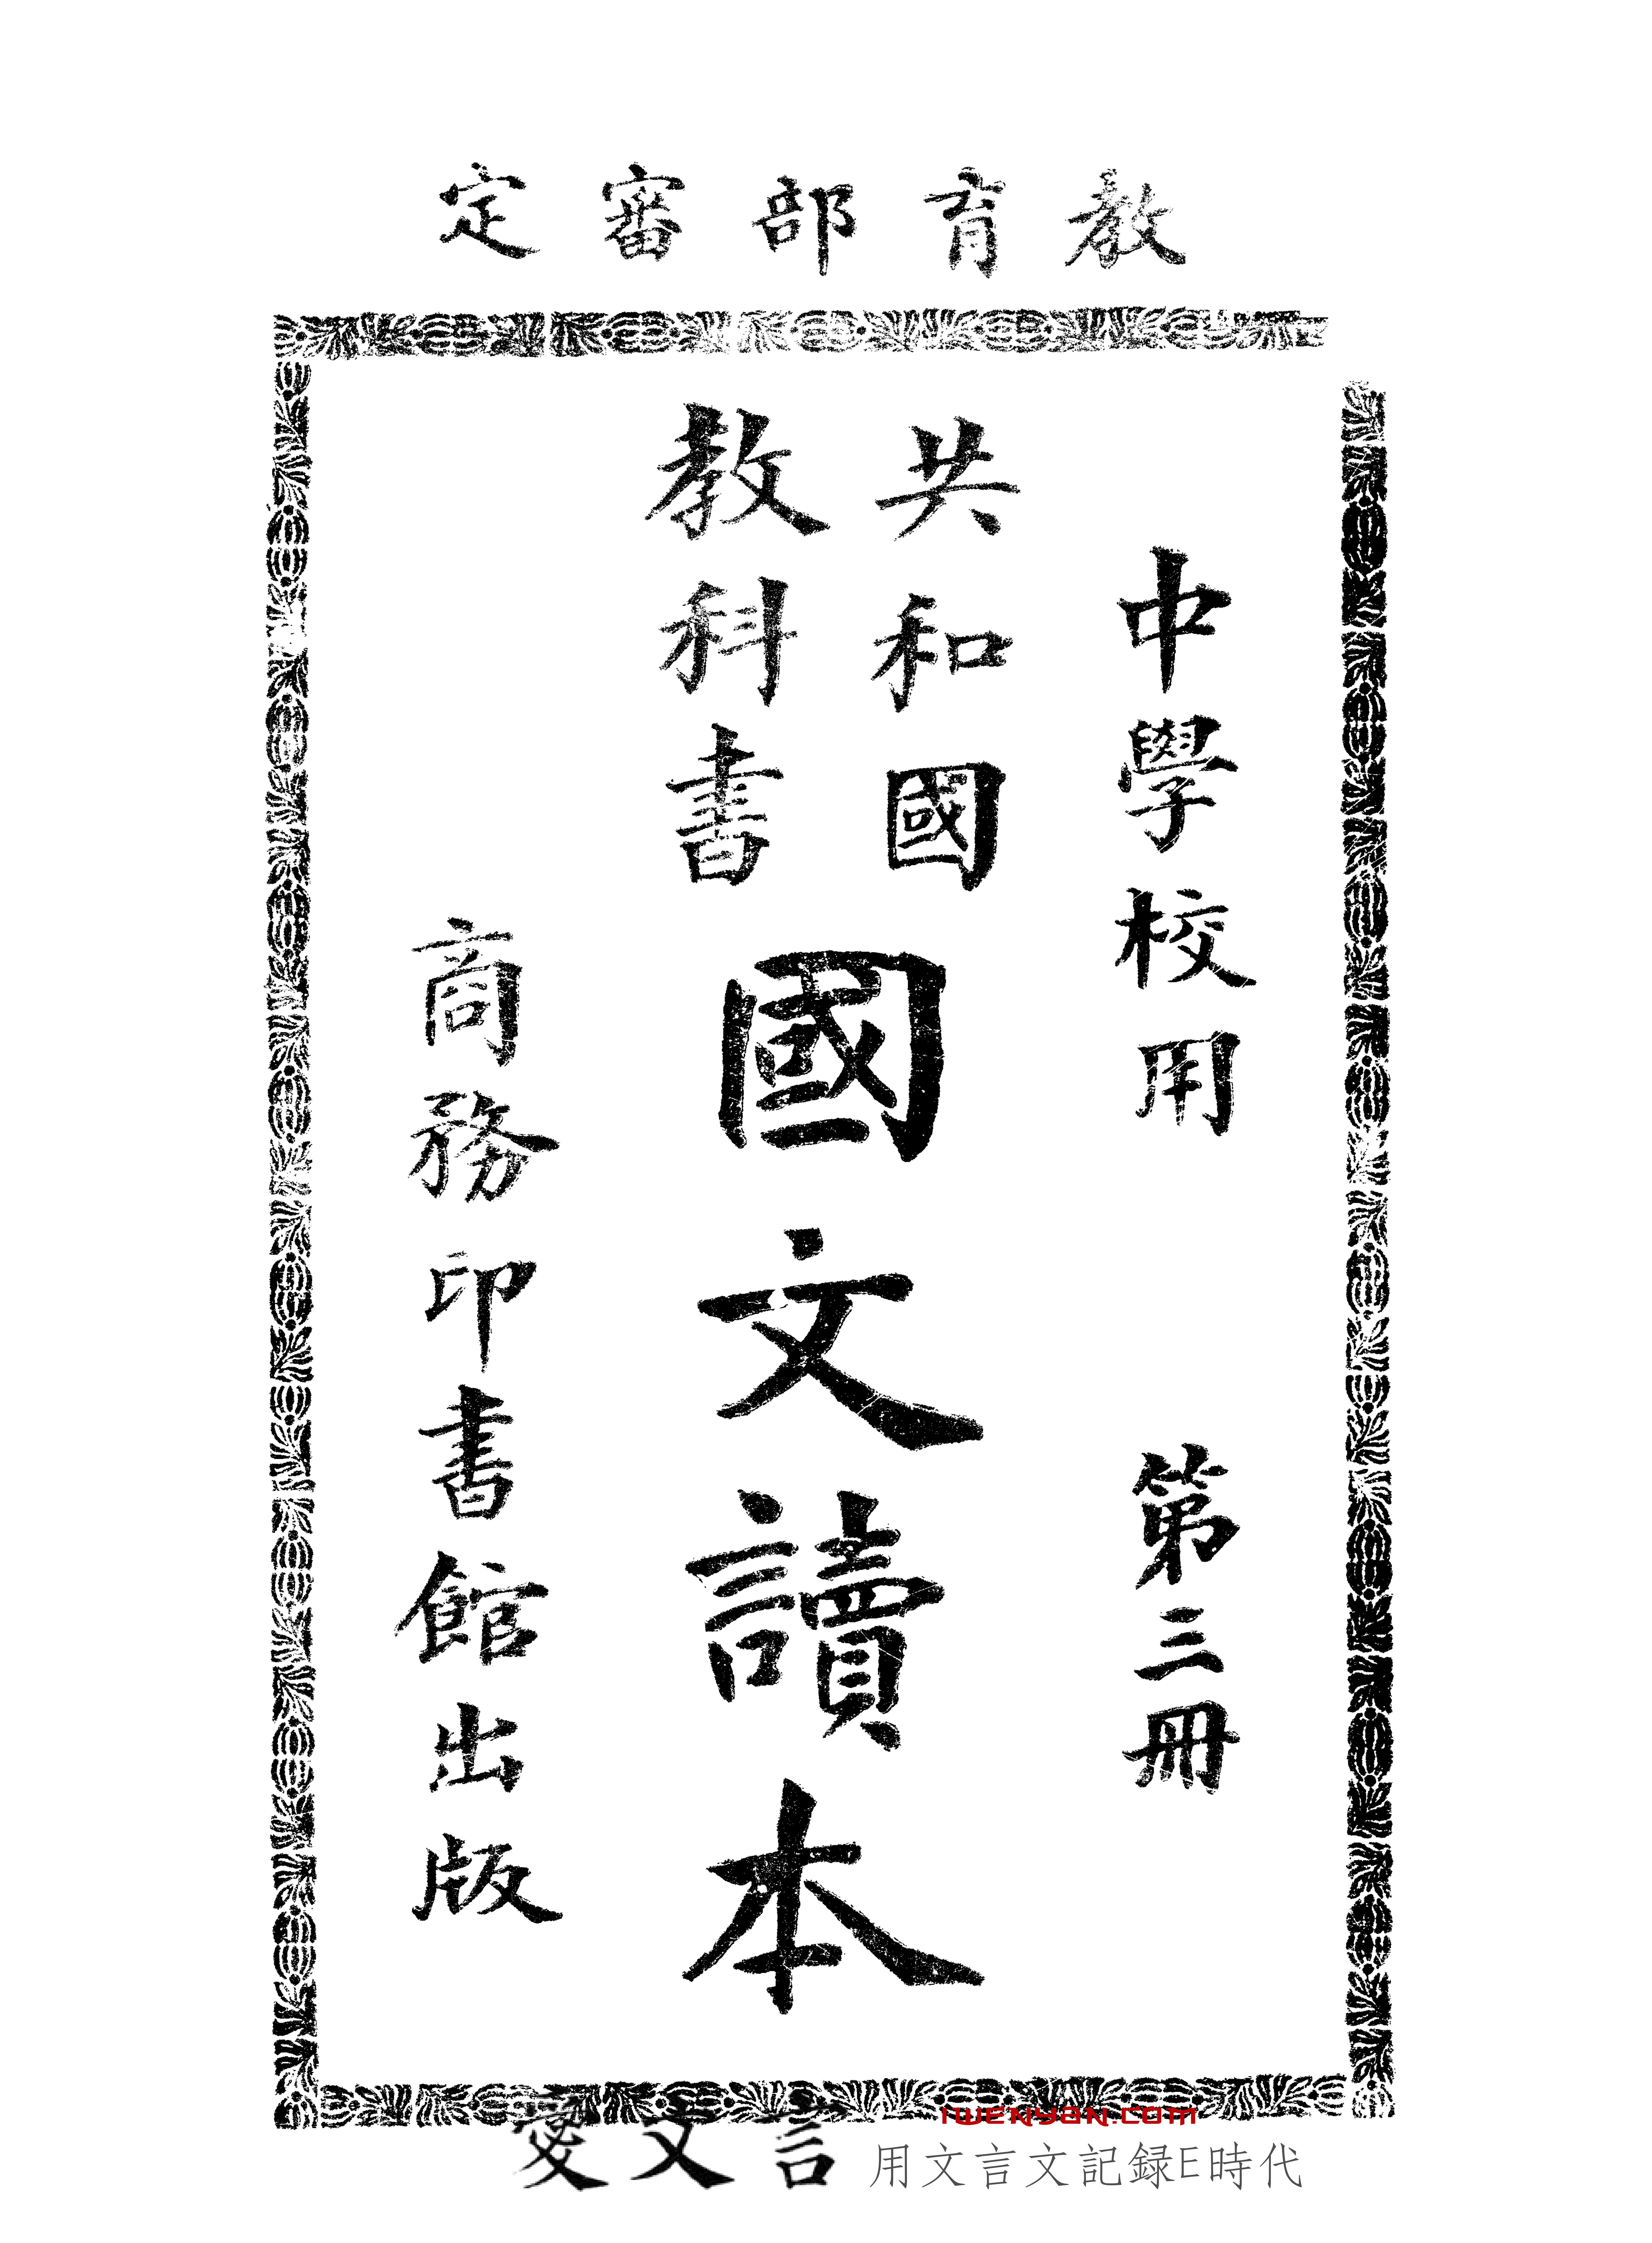 教育部審定
中學校用　第三冊
共和國
教科書
國文讀本
商務印書館出版
iwenyan.com
愛文言
用文言文記録E時代